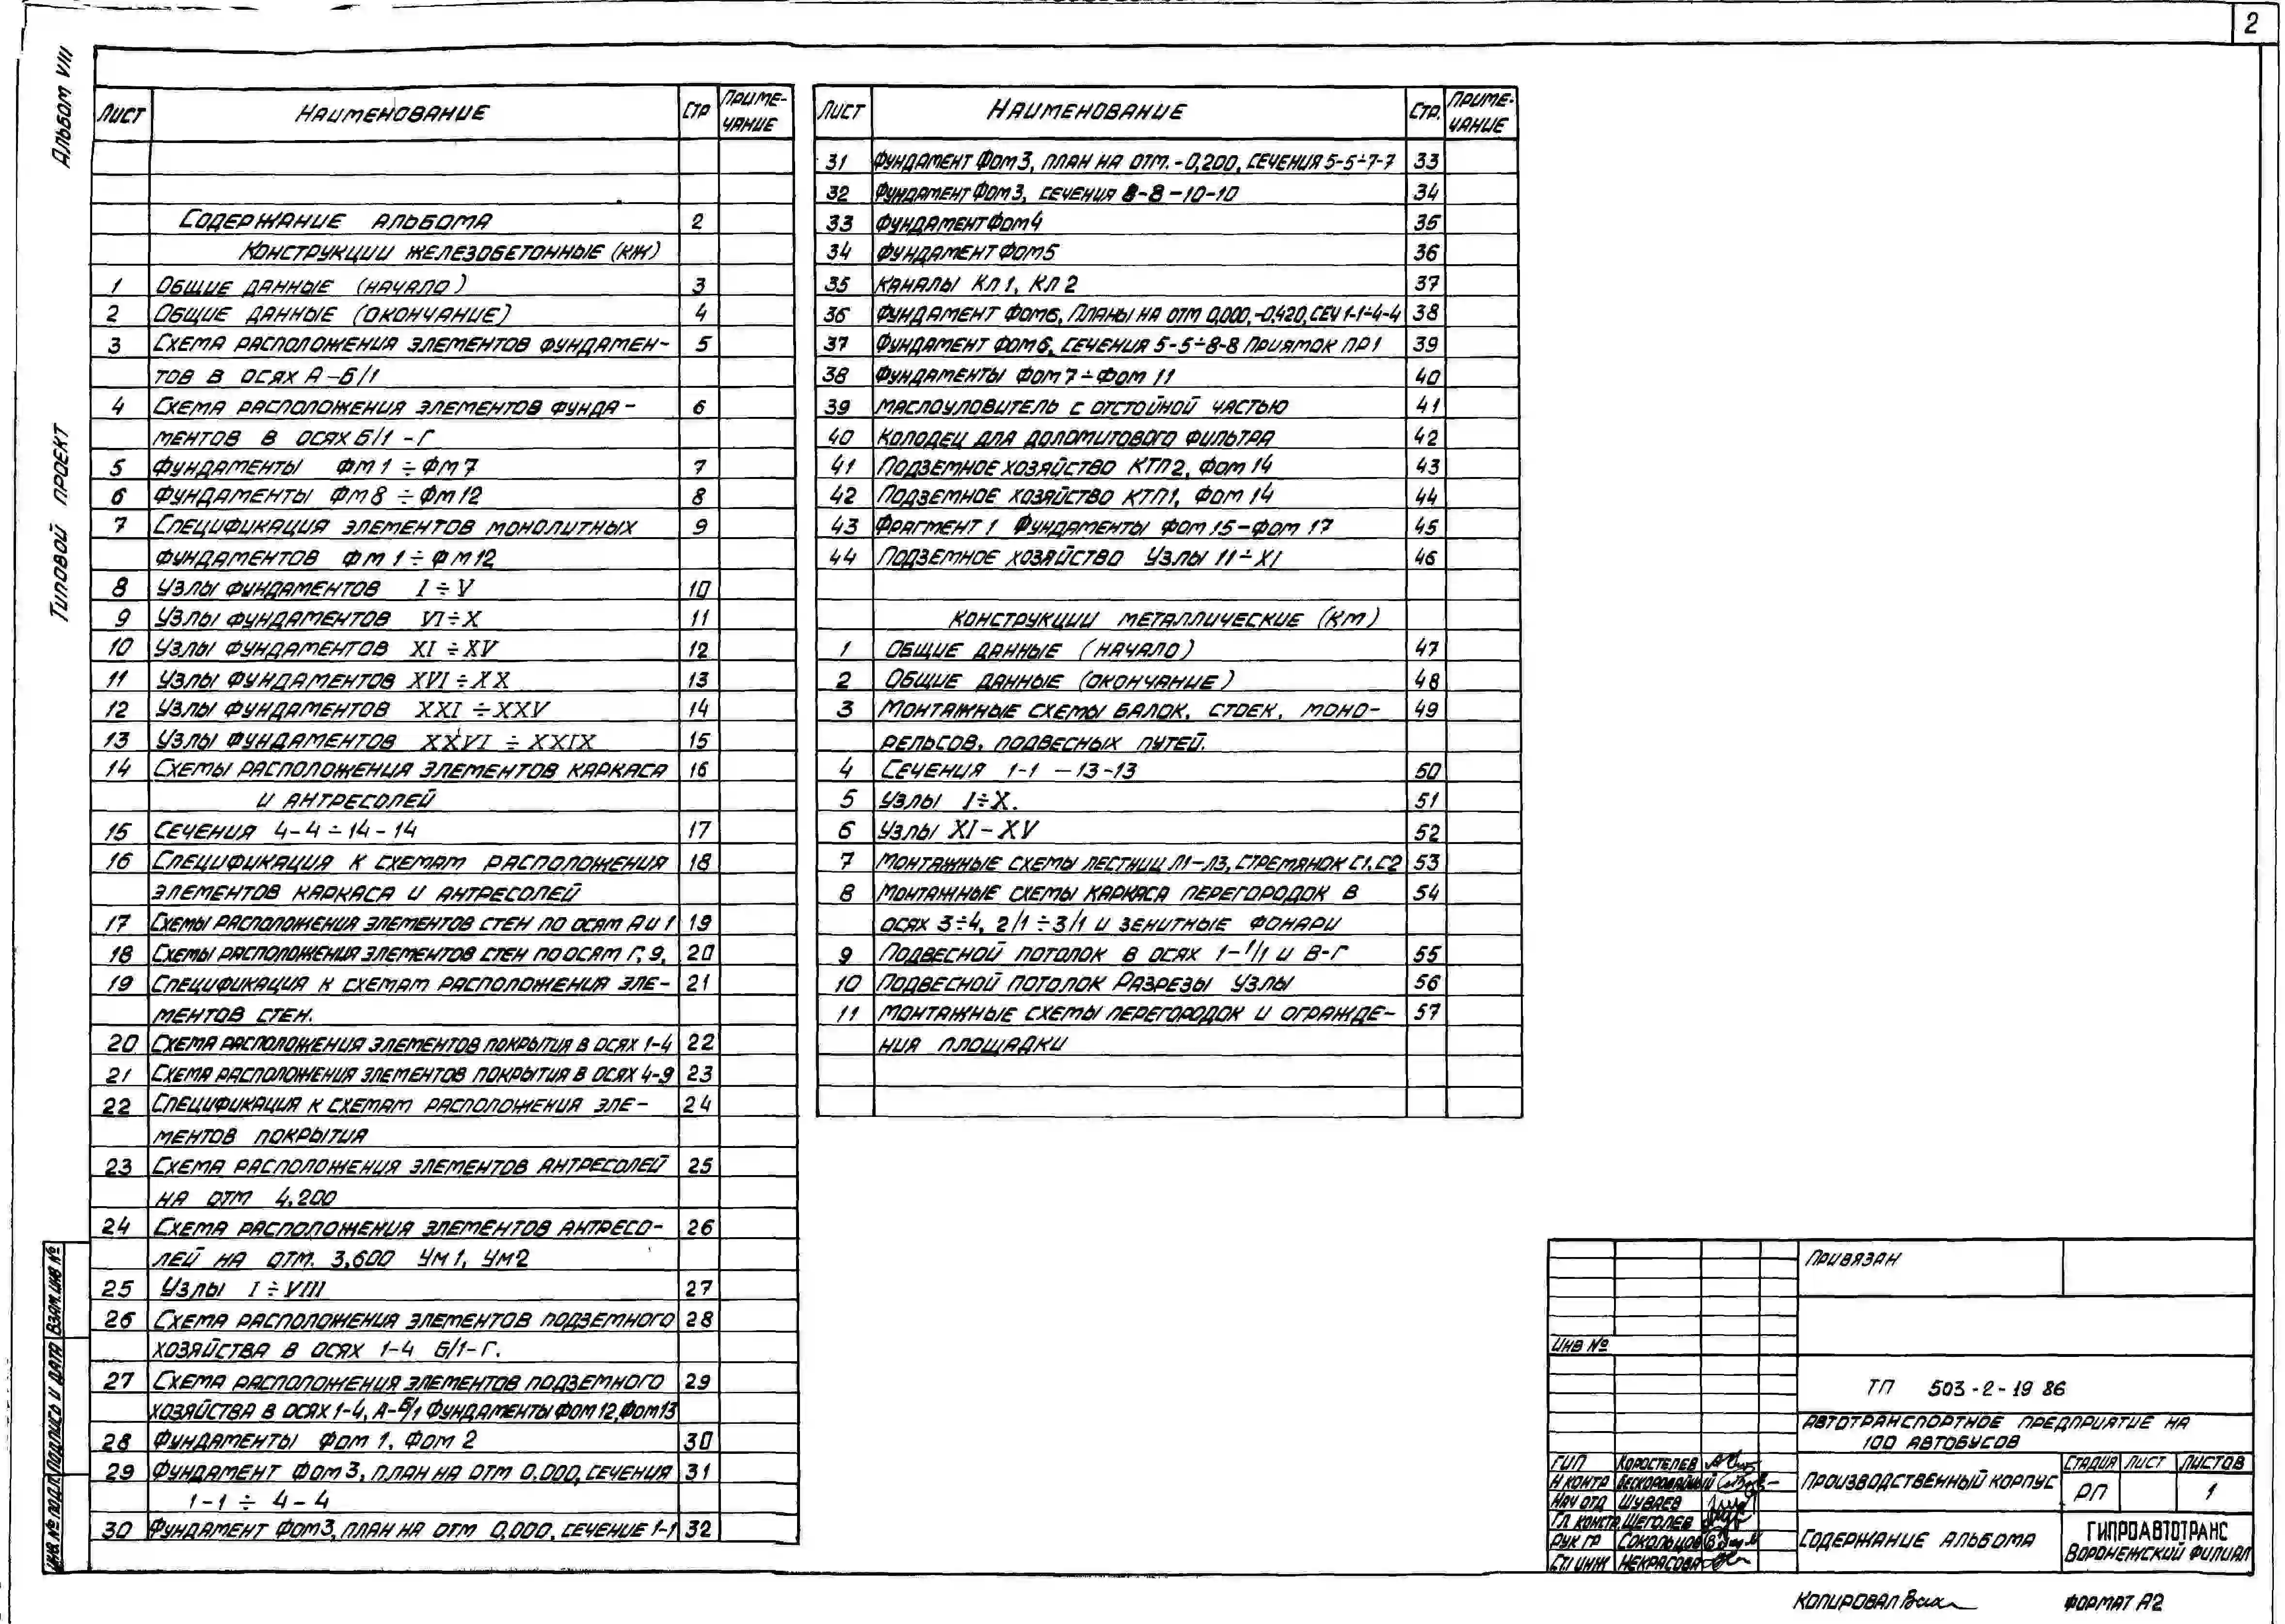 2
Альбом VIII
Типовой проект
Лист Наименование Стр Примечание
Содержание альбома 2
Конструкции железобетонные (КЖ)
1 Общие данные (начало) 3
2 Общие данные (окончание) 4
3 Схема расположения элементов фундамен- 5
тов в осях А-Б/1
4 Схема расположения элементов фунда- 6
ментов в осях Б/1 -Г
5 Фундаменты Фм1 ÷ Фм7 7
6 Фундаменты Фм8 ÷ Фм12 8
7 Спецификация элементов монолитных 9
фундаментов Фм1 ÷ Фм12
8 Узлы фундаментов I ÷ V 10
9 Узлы фундаментов VI ÷ X 11
10 Узлы фундаментов XI ÷ XV 12
11 Узлы фундаментов XVI ÷ XX 13
12 Узлы фундаментов XXI ÷ XXV 14
13 Узлы фундаментов XXVI ÷ XXIX 15
14 Схемы расположения элементов каркаса 16
и антресолей
15 Сечения 4-4 ÷ 14-14 17
16 Спецификация к схемам расположения 18
элементов каркаса и антресолей
17 Схемы расположения элементов стен по осям А и 1 19
18 Схемы расположения элементов стен по осям Г, 9, 20
19 Спецификация к схемам расположения эле- 21
ментов стен.
20 Схема расположения элементов покрытия в осях 1-4 22
21 Схема расположения элементов покрытия в осях 4-9 23
22 Спецификация к схемам расположения эле- 24
ментов покрытия
23 Схема расположения элементов антресолей 25
на отм 4,200
24 Схема расположения элементов антресо- 26
лей на отм. 3,600 Ум1, Ум2
25 Узлы I ÷ VIII 27
26 Схема расположения элементов подземного 28
хозяйства в осях 1-4 Б/1-Г.
27 Схема расположения элементов подземного 29
хозяйства в осях 1-4, А-Б/1 Фундаменты Фом12, Фом13
28 Фундаменты Фом 1, Фом 2 30
29 Фундамент Фом3, план на отм 0,000, сечения 31
1-1 ÷ 4-4
30 Фундамент Фом3, план на отм 0,000, сечение 1-1 32
Лист Наименование Стр. Примечание
31 Фундамент Фом3, план на отм. -0,200, сечения 5-5÷7-7 33
32 Фундамент Фом3, сечения 8-8 - 10-10 34
33 Фундамент Фом4 35
34 Фундамент Фом5 36
35 Каналы Кл1, Кл2 37
36 Фундамент Фом6, планы на отм 0,000, -0,420, сеч 1-1÷4-4 38
37 Фундамент Фом6, сечения 5-5÷8-8 приямок ПР1 39
38 Фундаменты Фом7 ÷ Фом 11 40
39 Маслоуловитель с отстойной частью 41
40 Колодец для доломитового фильтра 42
41 Подземное хозяйство КТП2, Фом 14 43
42 Подземное хозяйство КТП1, Фом 14 44
43 Фрагмент 1 Фундаменты Фом 15-Фом 17 45
44 Подземное хозяйство Узлы 11 ÷ XI 46
Конструкции металлические (КМ)
1 Общие данные (начало) 47
2 Общие данные (окончание) 48
3 Монтажные схемы балок, стоек, моно- 49
рельсов, подвесных путей.
4 Сечения 1-1 - 13-13 50
5 Узлы I÷X. 51
6 Узлы XI-XV 52
7 Монтажные схемы лестниц Л1-Л3, стремянок С1,С2 53
8 Монтажные схемы каркаса перегородок в 54
осях 3÷4, 2/1 ÷ 3/1 и зенитные фонари
9 Подвесной потолок в осях 1-1/1 и В-Г 55
10 Подвесной потолок Разрезы Узлы 56
11 Монтажные схемы перегородок и огражде- 57
ния площадки
Привязан
Инв №
ТП 503-2-19 86
Автотранспортное предприятие на
100 автобусов
ГИП Коростелев
Н контр Бескоровайный
Нач отд Шуваев
Гл констр. Щеголев
Рук гр Сокольцов
Ст инж Некрасова
Производственный корпус
Стадия Лист Листов
РП 1
Содержание альбома
ГИПРОАВТОТРАНС
Воронежский филиал
Копировал
Формат А2
Инв. № подл. Подпись и дата Взам. инв №